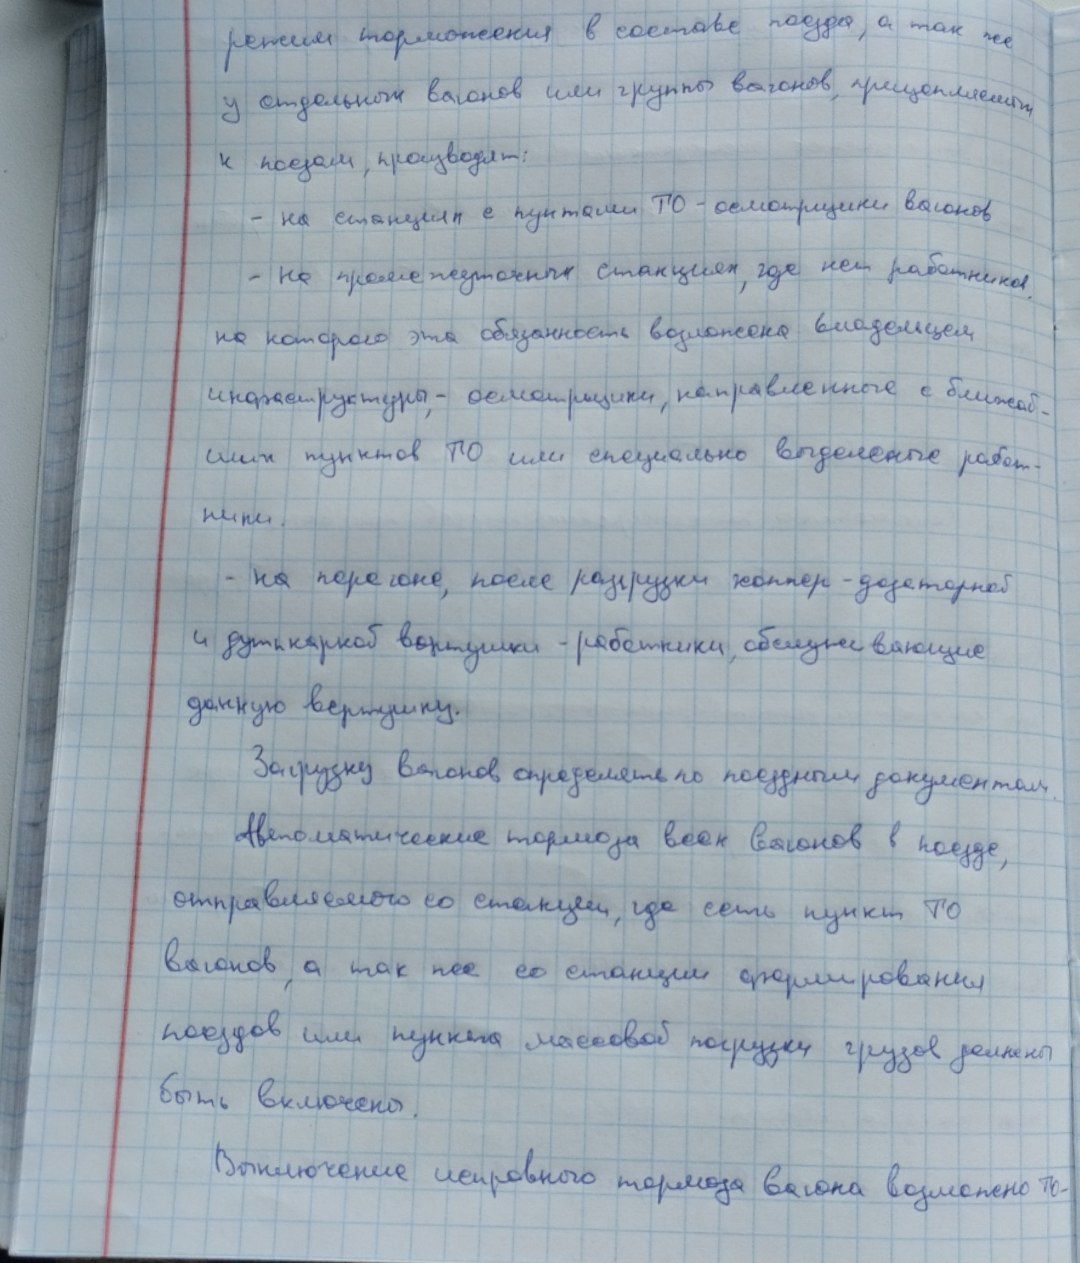 режим торможения в составе поезда, а так же
у отдельных вагонов или группы вагонов, прицепляемых
к поездам, производят:
- на станциях с пунтами ТО - осмотрщики вагонов
- на промежуточных станциях, где нет работников,
на которого эта обязанность возложена владельцем
инфраструктуры, - осмотрщики, направленные с ближай-
ших пунктов ТО или специально выделеные работ-
ники.
- на перегоне, после разгрузки хоппер-дозаторной
и думпкарной вертушки - работники, обслуживающие
данную вертушку.
Загрузку вагонов определять по поездным документам.
Автоматические тормоза всех вагонов в поезде,
отправляемого со станции, где есть пункт ТО
вагонов, а так же со станции формирования
поездов или пункта массовой погрузки грузов должны
быть включены.
Выключение исправного тормоза вагона возможено то-